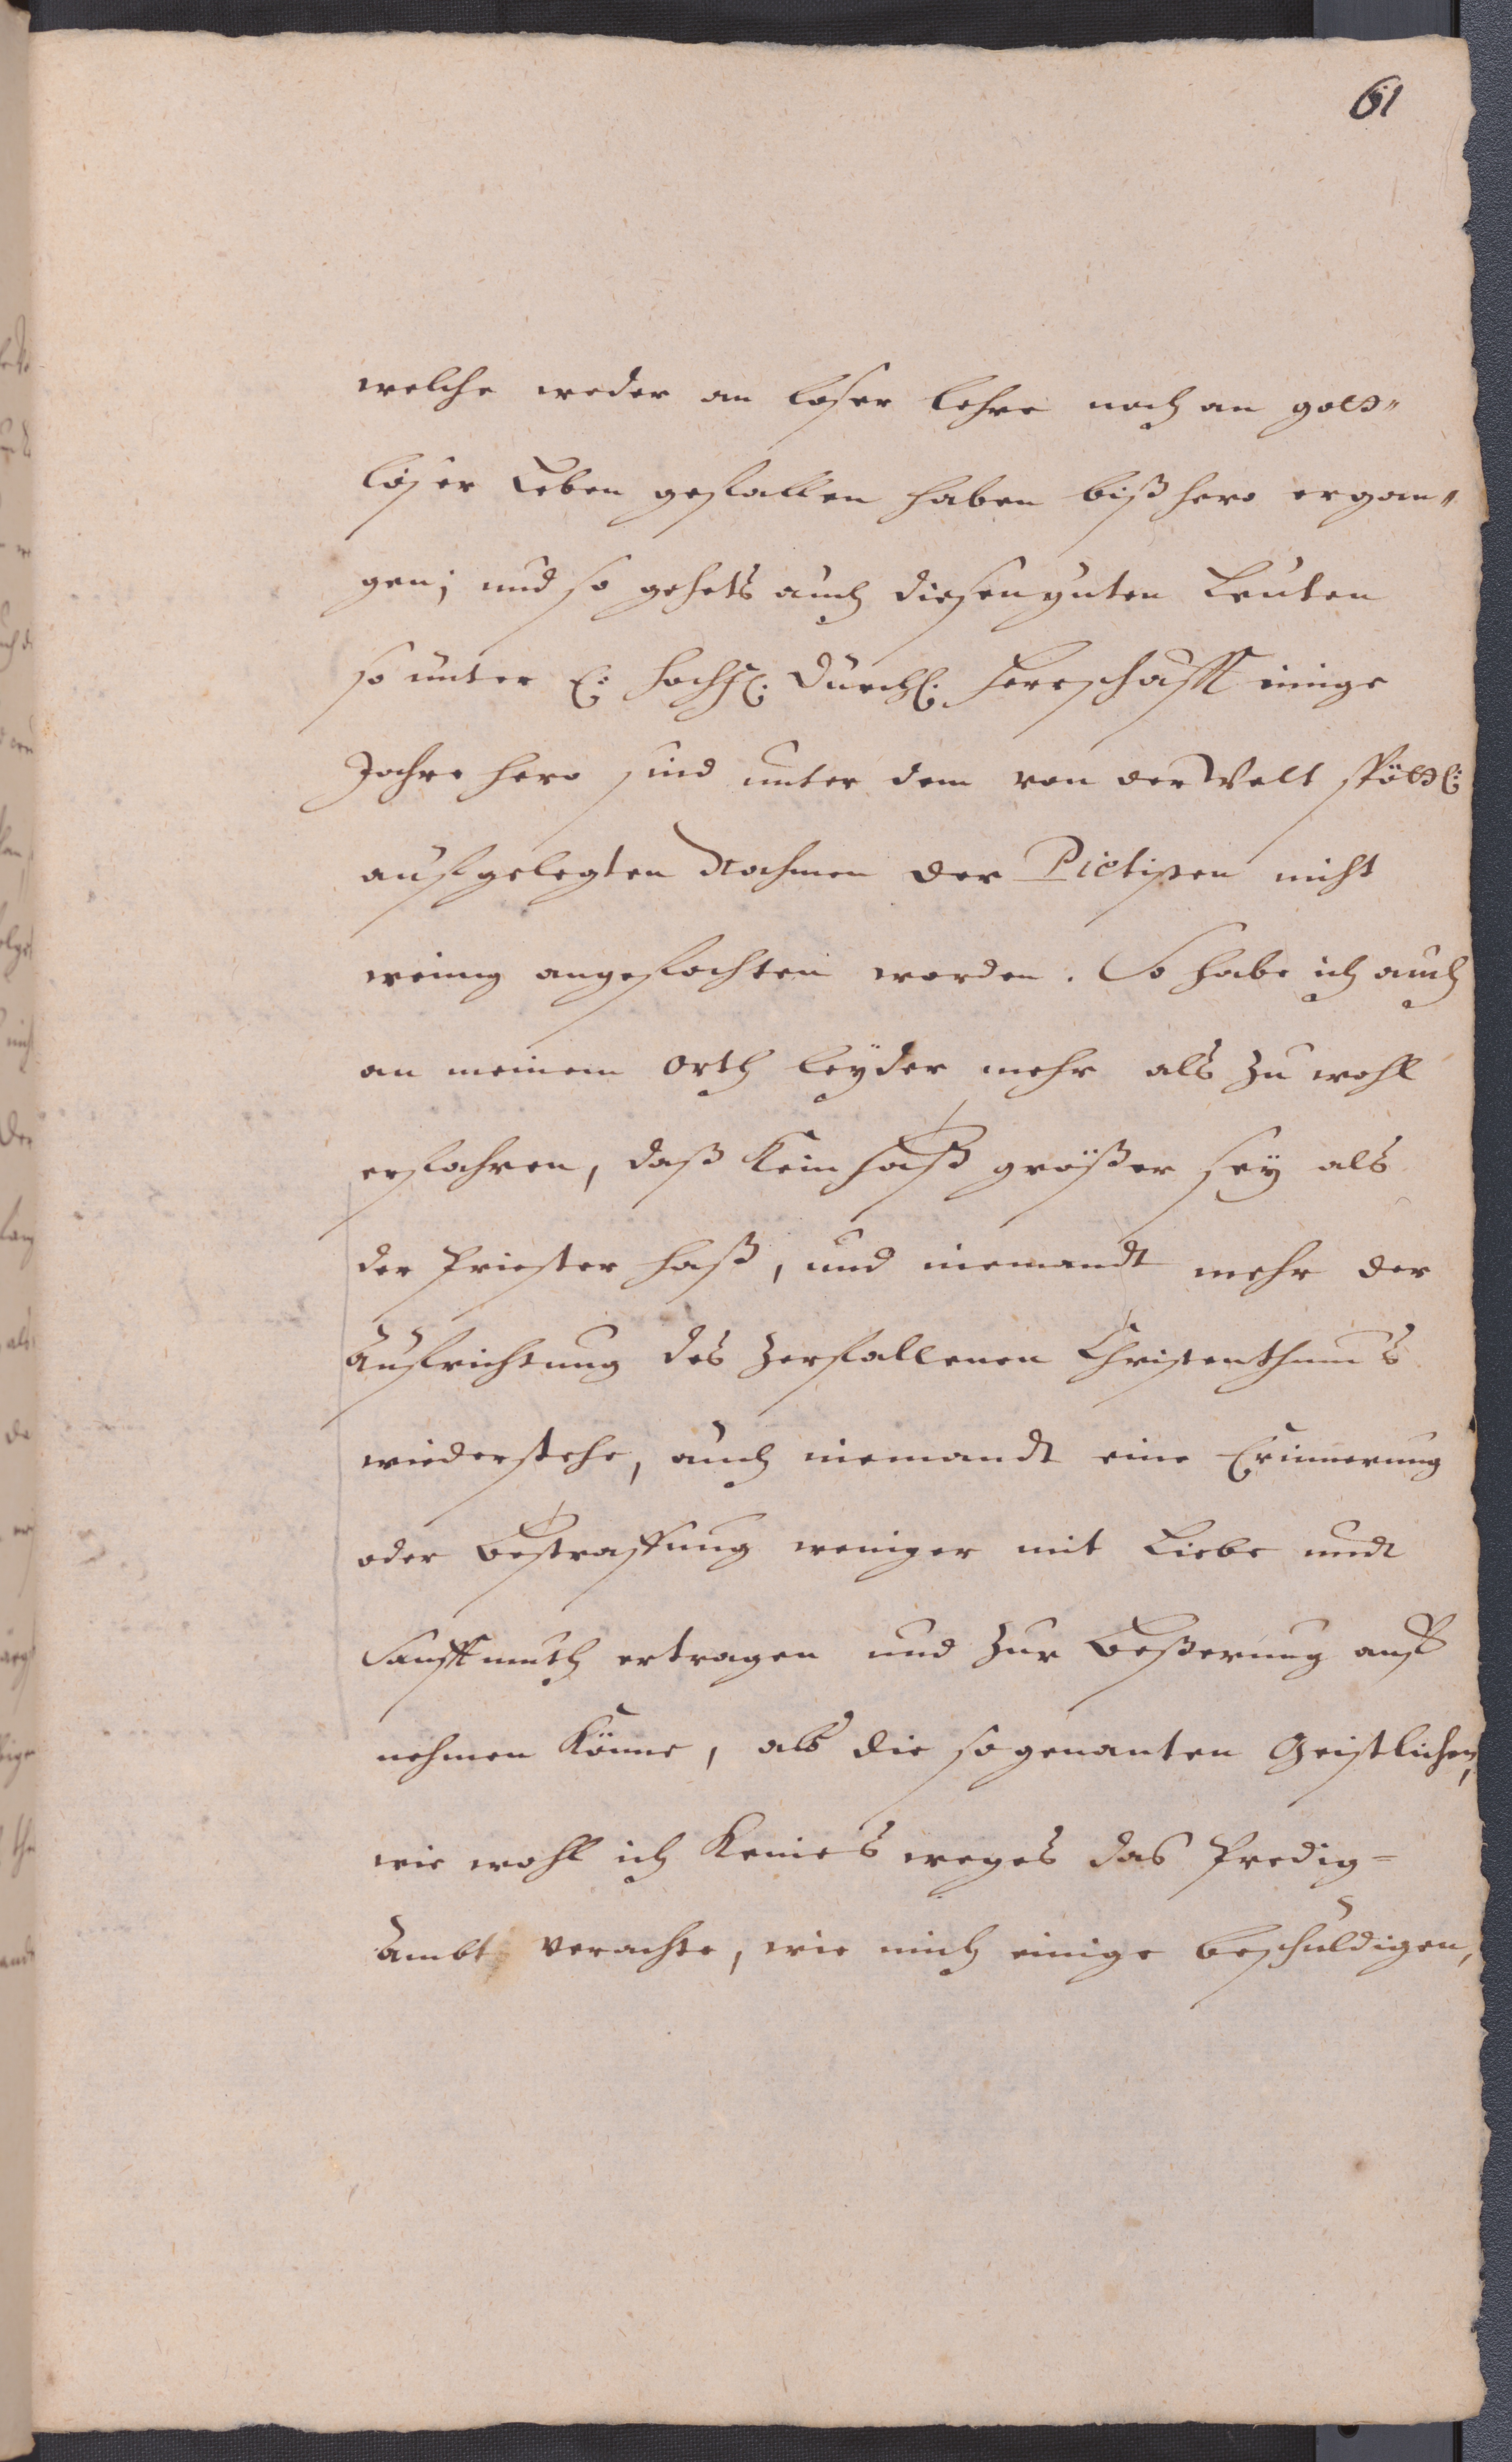 61
welche weder an loser lehre noch an gott„
loser Leben gefallen haben bißhero ergan„
gen; und so gehets auch diesen guten Leuten
so unter E: hochf. Durchl. Herrschafft einige
Jahre hero sind unter dem von der Welt spöttl:
aufgelegten Nahmen der Pietisten nicht
weinig angefochten worden. So habe ich auch
an meinem orth leyder mehr als zu wohl
erfahren, daß kein haß größer sey als
der Priester haß, und niemandt mehr der
Aufrichtung des zerfallenen Christenthums
wiederstehe, auch niemandt eine Erinnerung
oder bestraffung weniger mit Liebe undt
Sanfftmuth ertragen und zur beßerung auff
nehmen könne, als die so genanten Geistlichen,
wie wohl ich keines weges das Predig=
Ambt verachte, wie mich einige beschuldigen,